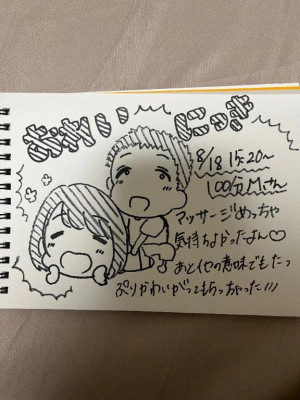 おれいにっき
8/18 15:20~
100分 Mさん
マッサージめっちゃ
気持ちよかったよん♡
あと他の意味でもたっ
ぷりかわいがってもらっちゃった///